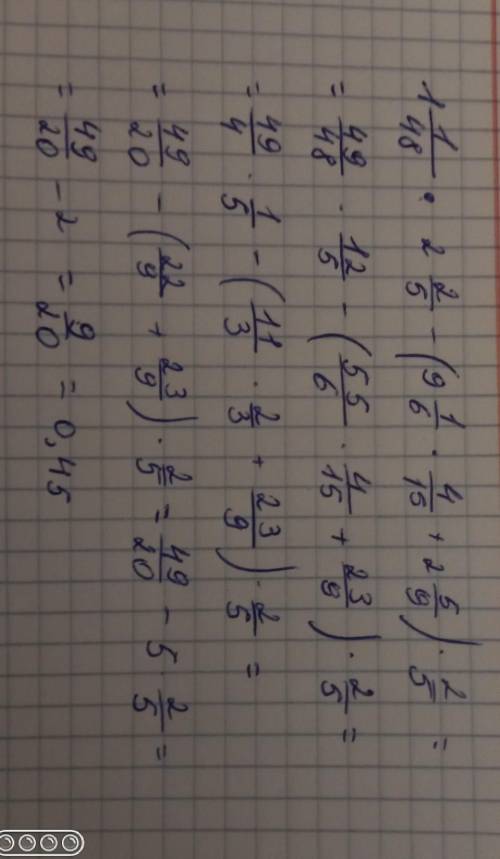 1 1/48 · 2 2/5 - (9 1/6 · 4/15 + 2 5/9) · 2/5 =
= 49/48 · 12/5 - (55/6 · 4/15 + 23/9) · 2/5 =
= 49/4 · 1/5 - (11/3 · 2/3 + 23/9) · 2/5 =
= 49/20 - (22/9 + 23/9) · 2/5 = 49/20 - 5 · 2/5 =
= 49/20 - 2 = 9/20 = 0,45